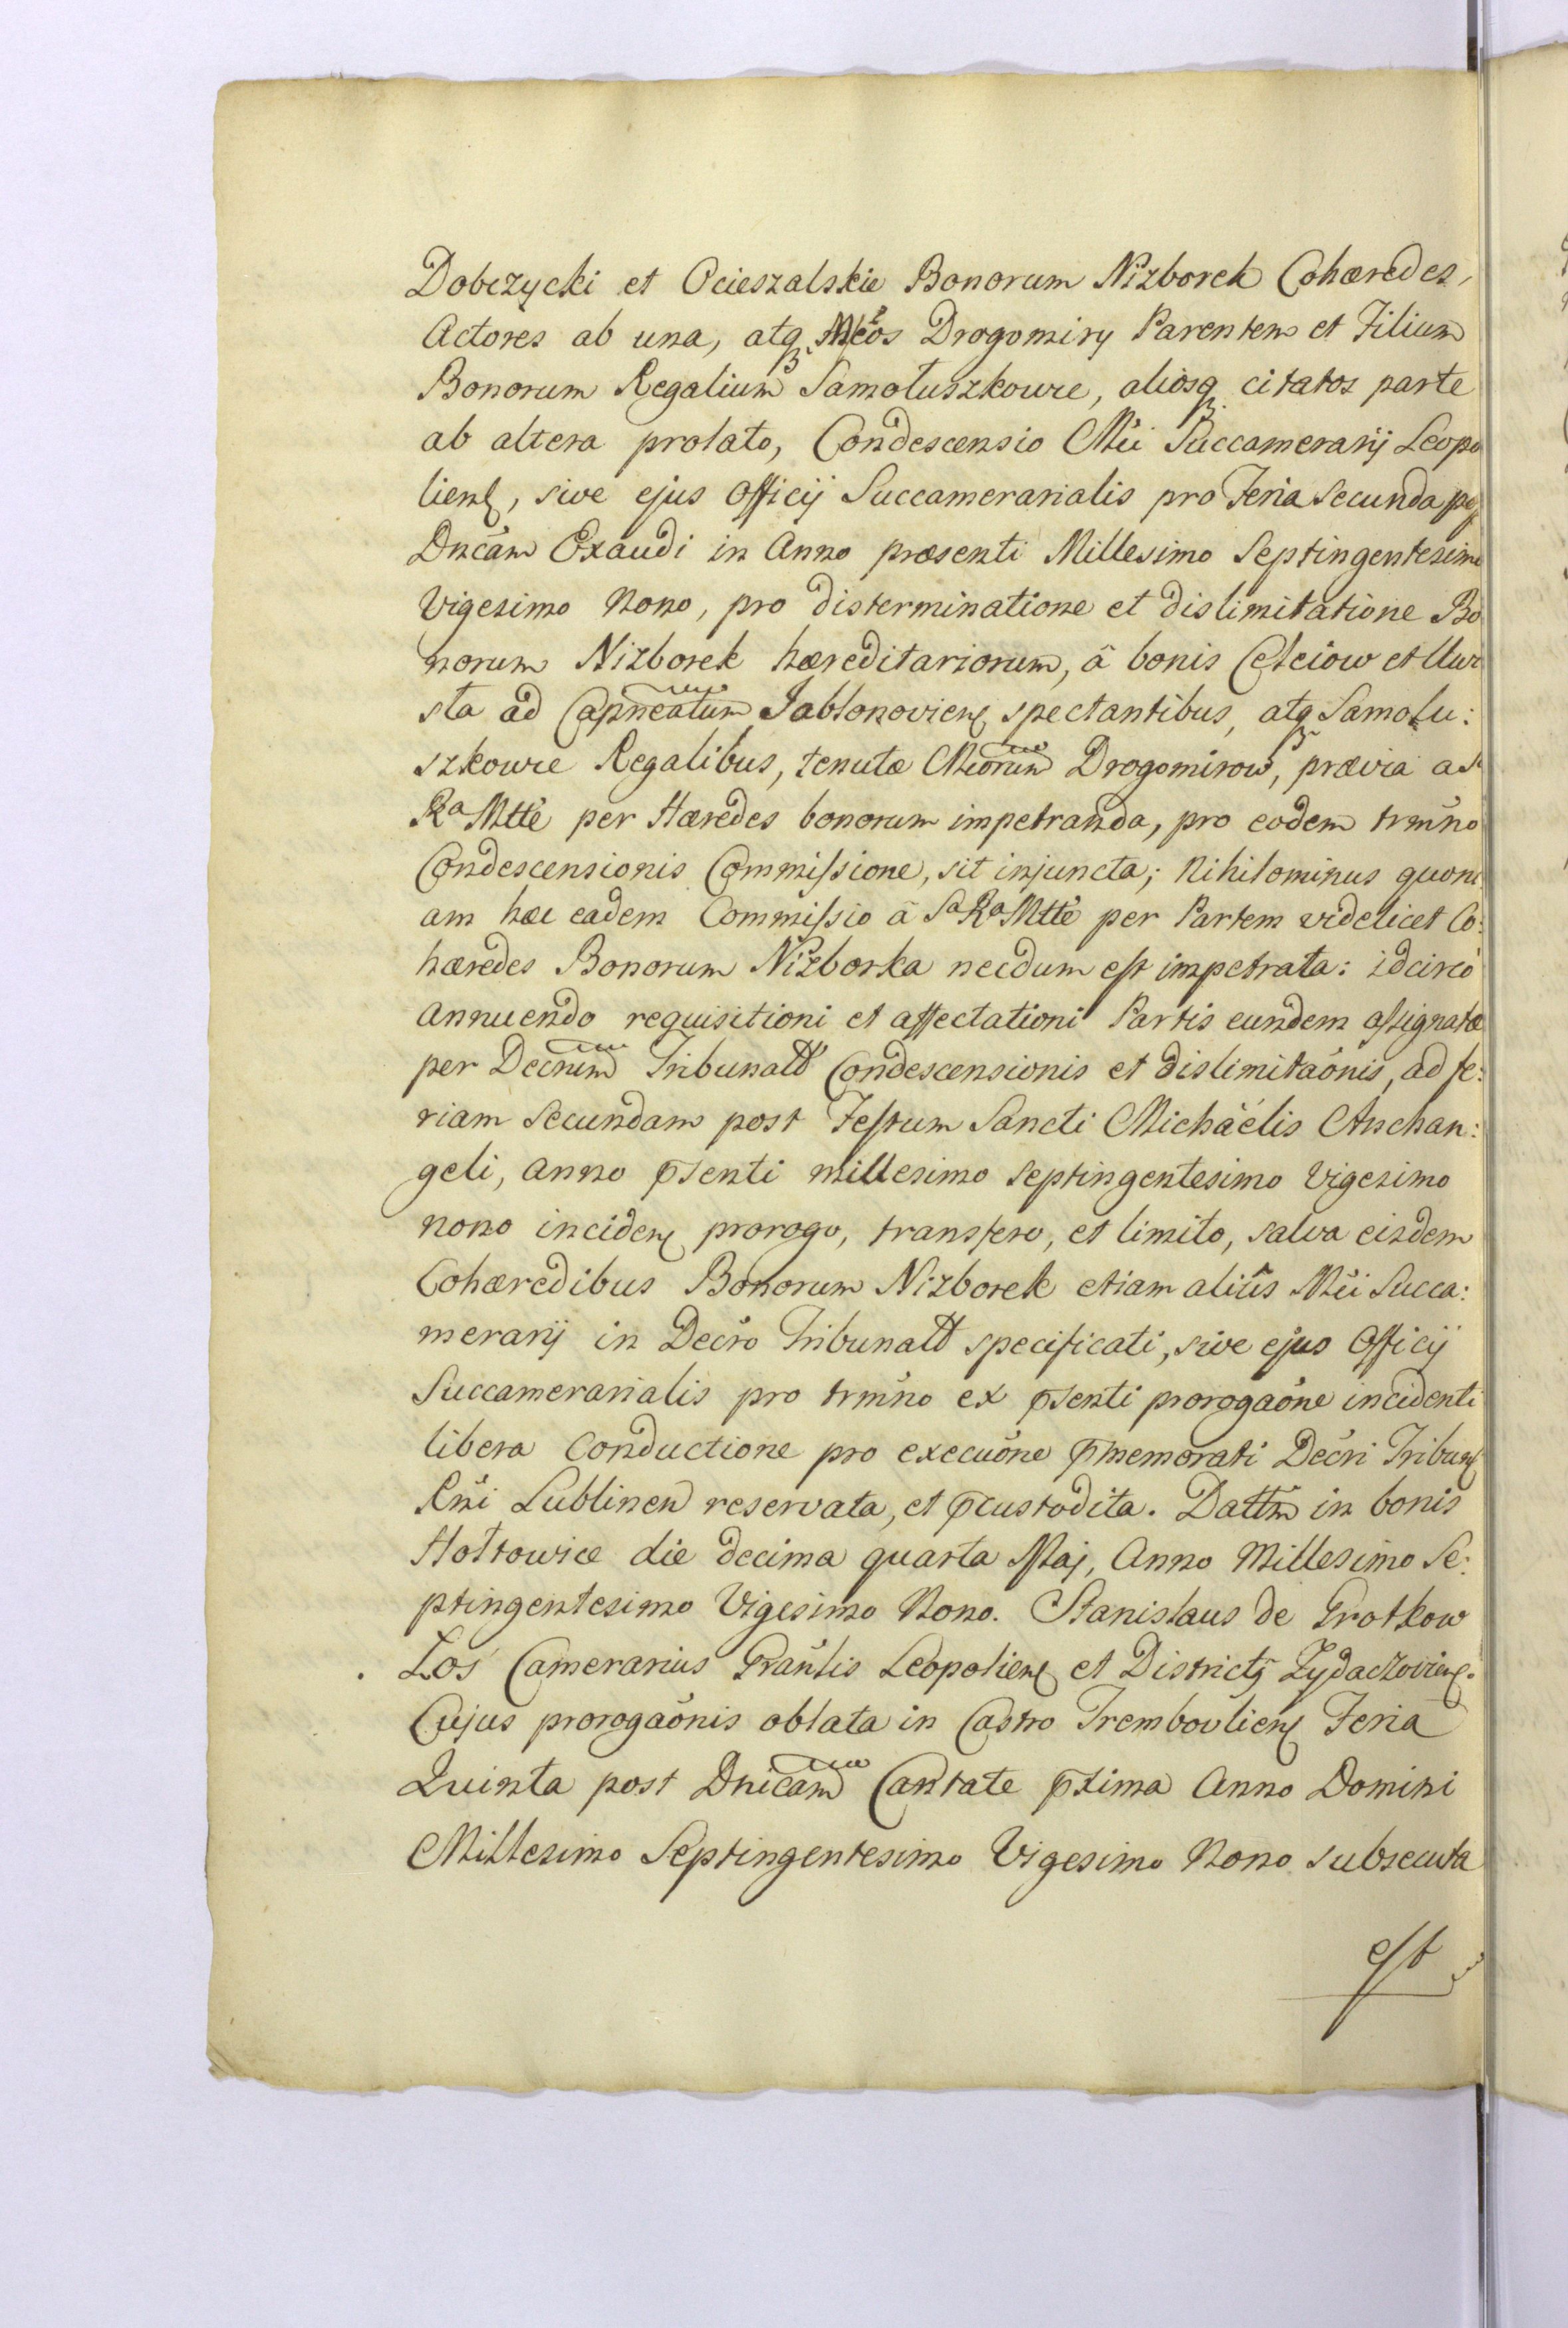 Dobczycki et Ocieszalskie Bonorum Nizborek Cohæredes,
Actores ab una, atq̃ Mcõs Drogomiry Parentem et Filium
Bonorum Regalium Samołuszkowce, aliosq̃ citatos parte
ab altera prolato, Condescensio Mci Succamerarij Leopo
liens, sive ejus Officij Succamerarialis pro Feria Secunda
Dncam Exaudi in Anno præsenti Millesimo Septingentesimo
Vigesimo Nono, pro disterminatione et dislimitatione Bo
norum Nizborek hæreditariorum, â bonis Celeiow et
sta ad Capneatum Jabłonoviens spectantibus, atq̃ Samołu:
szkowce Regalibus, tenutæ Mcorum Drogomirow, prævia a
Ra Mtte per Hæredes bonorum impetranda, pro eodem trmno
Condescensionis Commissione, sit injuncta; Nihilominus quoni
am hæc eadem Commissio â Sa Ra Mtte per Partem videlicet Co:
hæredes Bonorum Nizborka necdum est impetrata: idcirco
annuendo requisitioni et affectationi Partis eundem assignatæ
per Decrum Tribunalt Condescensionis et dislimitaõnis, ad fe:
riam Secundam post Festum Sancti Michaëlis Archan:
geli, anno p̃senti millesimo Septingentesimo Vigesimo
nono inciden prorogo, transfero, et limito, salva eisdem
Cohæredibus Bonorum Nizborek etiam aliûs Mci Succa:
merarij in Decro Tribunalt specificati, sive ejus Officij
Succamerarialis pro trmno ex p̃senti prorogaõne incidenti
libera Conductione pro execuõne p̃memorati Decri Tribun
Rni Lublinen reservata, et p̃custodita. Dattm in bonis
Hołkowice die decima quarta Maj, Anno Millesimo Se:
ptingentesimo Vigesimo Nono. Stanislaus de Grotkow
Łoś Camerarius Granlis Leopoliens et Districtq̃ Zydaczoviens.
Cujus prorogaõnis oblata in Castro Trembovliens Feria
Quinta post Dnicam Cantate p̃xima Anno Domini
Millesimo Septingentesimo Vigesimo Nono subsecuta
est